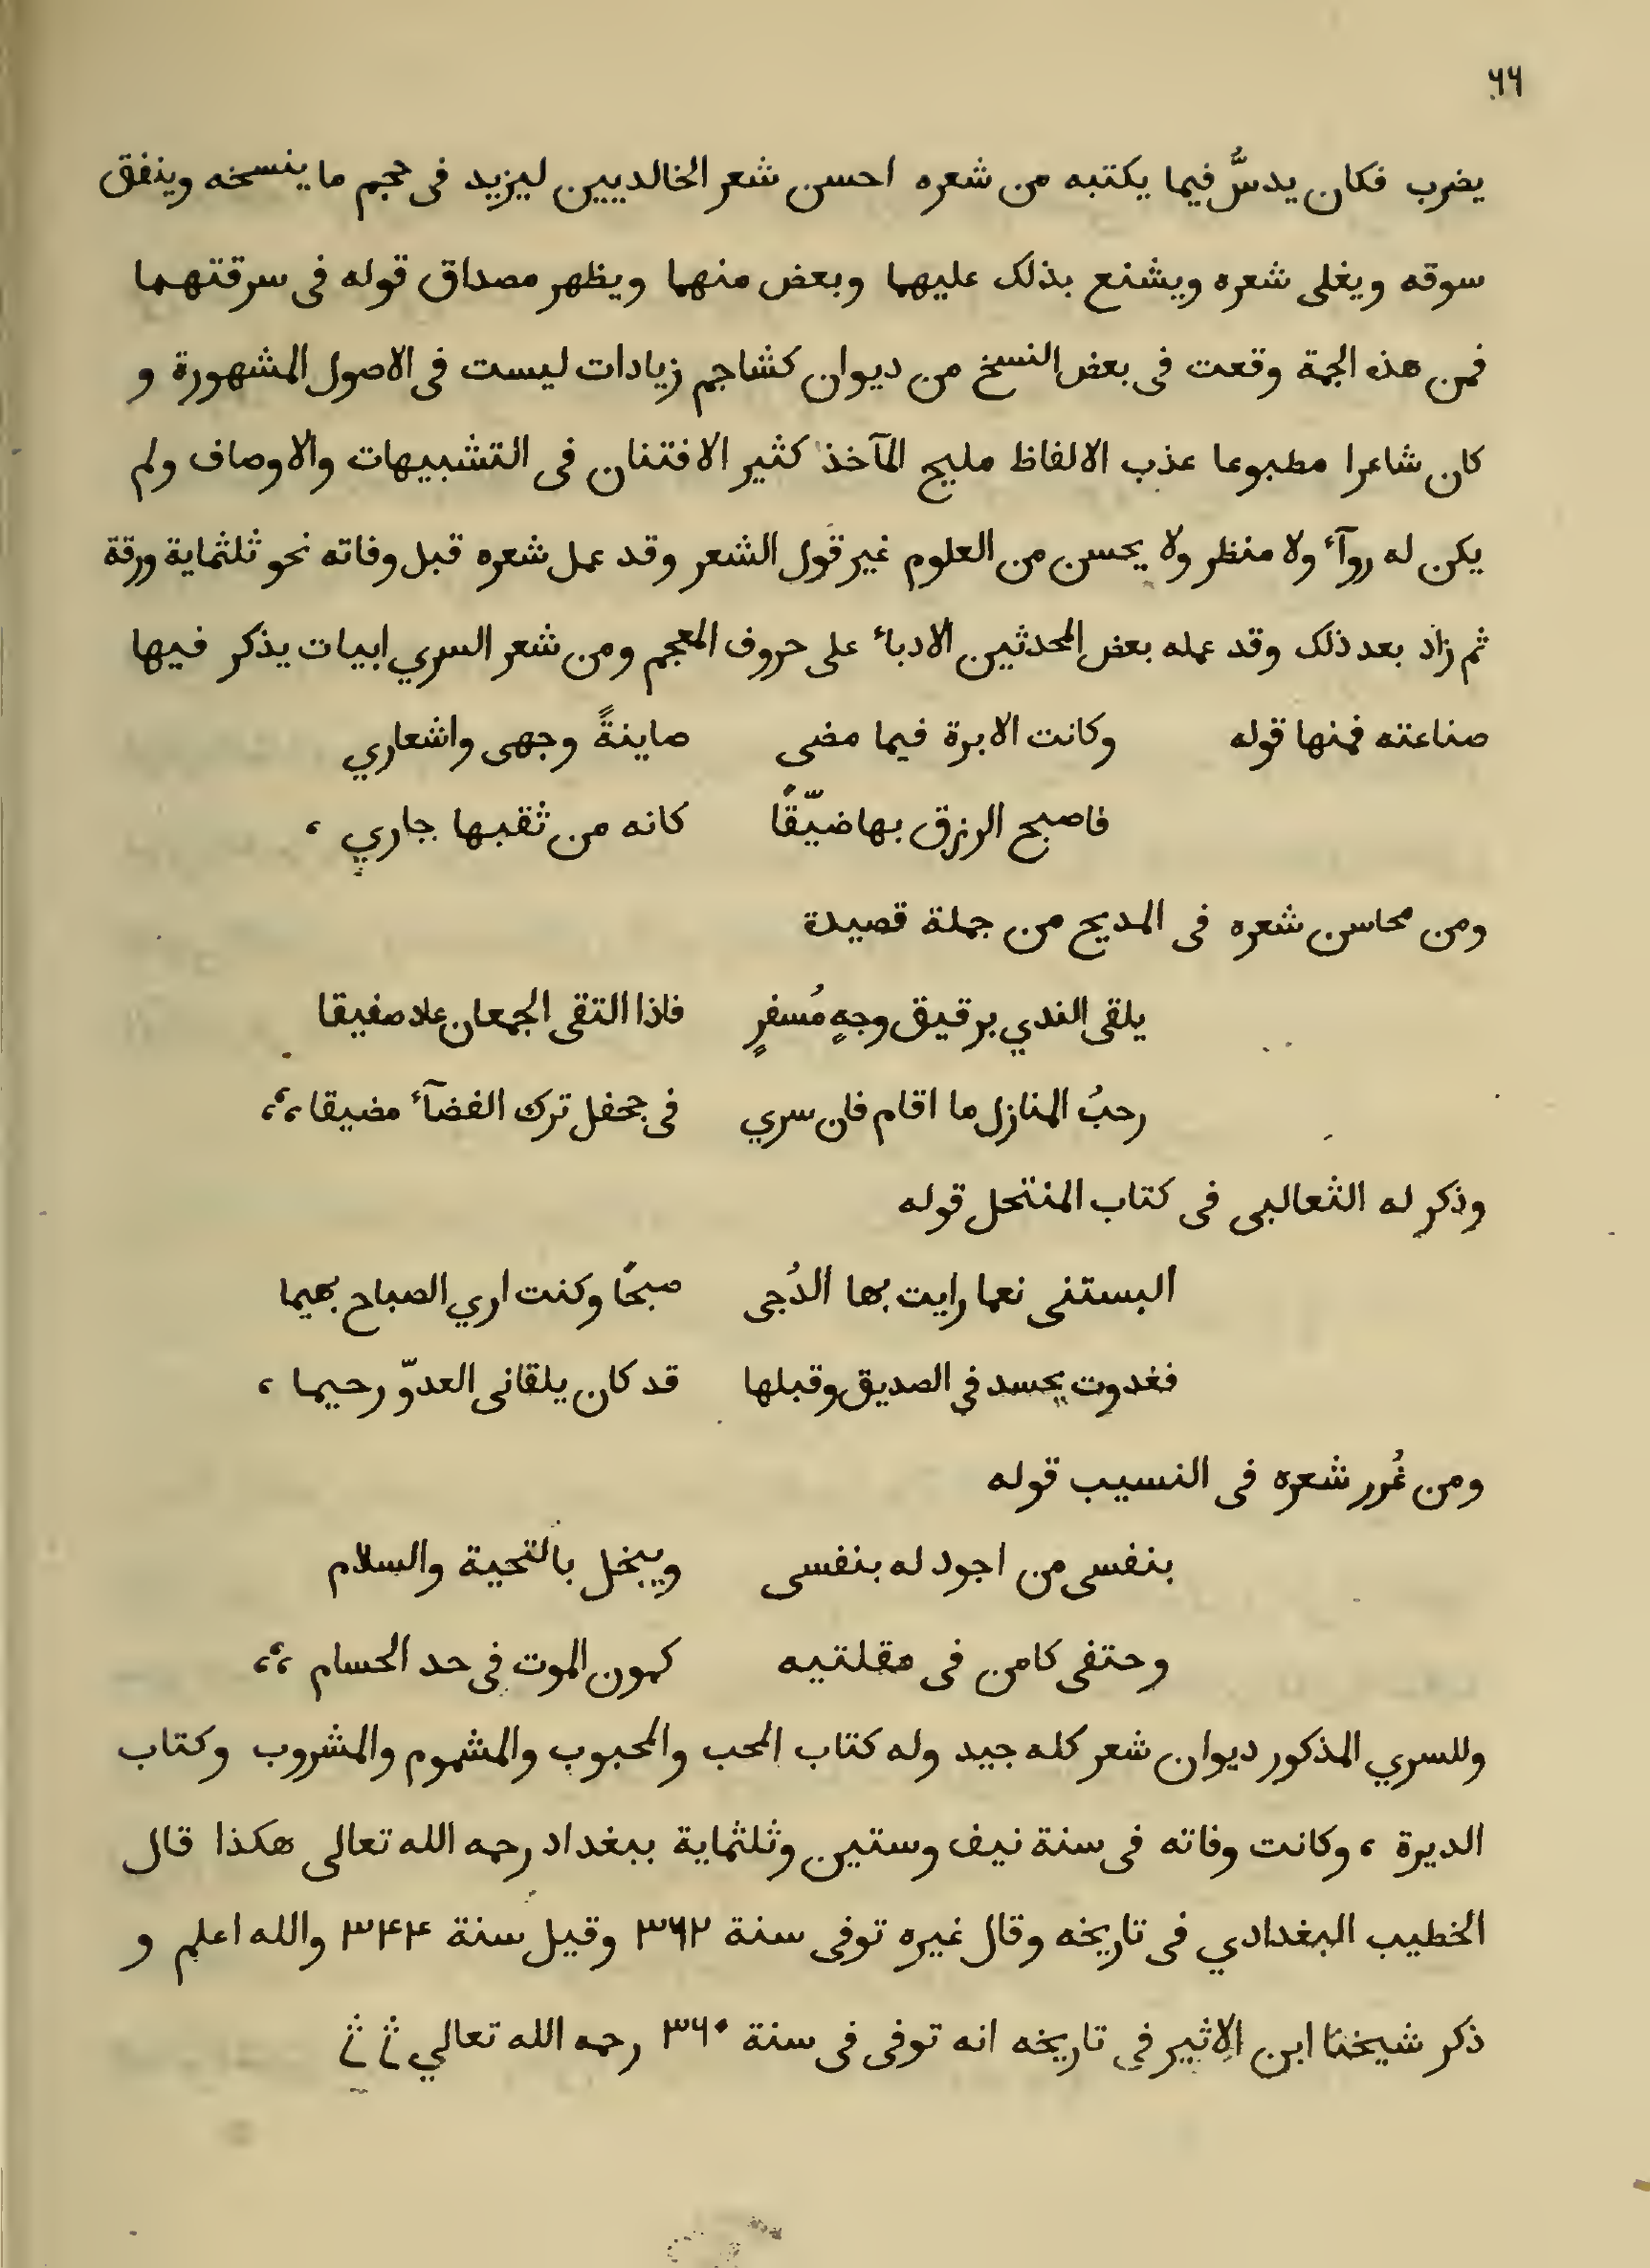 ٦٦
يضرب فكان يدسُّ فيما يكتبه من شعره احسن شعر الخالديين ليزيد فى حجم ما ينسخه وينفق
سوقه ويغلى شعره ويشنع بذلك عليهما وبعض منهما ويظهر مصداق قوله فى سرقتهما
فمن هذه الجهة وقعت فى بعض النسخ من ديوان كشاجم زيادات ليست فى الاصول المشهورة و
كان شاعرا مطبوعا عذب الالفاظ مليح المآخذ كثير الافتنان فى التشبيهات والاوصاف ولم
يكن له روآء ولا منظر ولا يحسن من العلوم غير قول الشعر وقد عمل شعره قبل وفاته نحو ثلثماية ورقة
ثم زاد بعد ذلك وقد عمله بعض المحدثين الادباء على حروف المعجم ومن شعر السري ابيات يذكر فيها
صناعته فمنها قوله وكانت الابرة فيما مضى صاينةً وجهى واشعاري
فاصبح الرزق بها ضيّقًا كانه من ثقبها جاري ،
ومن محاسن شعره فى المديح من جملة قصيدة
يلقى الندي برقيق وجهٍ مُسفرٍ فاذا التقى الجمعان علاد صفيقا
رحبُ المنازل ما اقام فان سري فى جحفل ترك الفضآء مضيقا ،،،
وذكر له الثعالبى فى كتاب المنتحل قوله
البستنى نعما رايت بها الدُجى صبحًا وكنت اري الصباح بهيما
فغدوت يحسدني الصديق وقبلها قد كان يلقانى العدوّ رحيما ،
ومن غُرر شعره فى النسيب قوله
بنفسى من اجود له بنفسى ويبخل بالتحية والسلام
وحتفى كامن فى مقلتيه كمون الموت فى حد الحسام ،،،
وللسري المذكور ديوان شعر كله جيد وله كتاب المحب والمحبوب والمشموم والمشروب وكتاب
الديرة ، وكانت وفاته فى سنة نيف وستين وثلثماية ببغداد رحمه الله تعالى هكذا قال
الخطيب البغدادي فى تاريخه وقال غيره توفى سنة ٣٦٢ وقيل سنة ٣٤٤ والله اعلم و
ذكر شيخنا ابن الاثير فى تاريخه انه توفى فى سنة ٣٦٠ رحمه الله تعالي